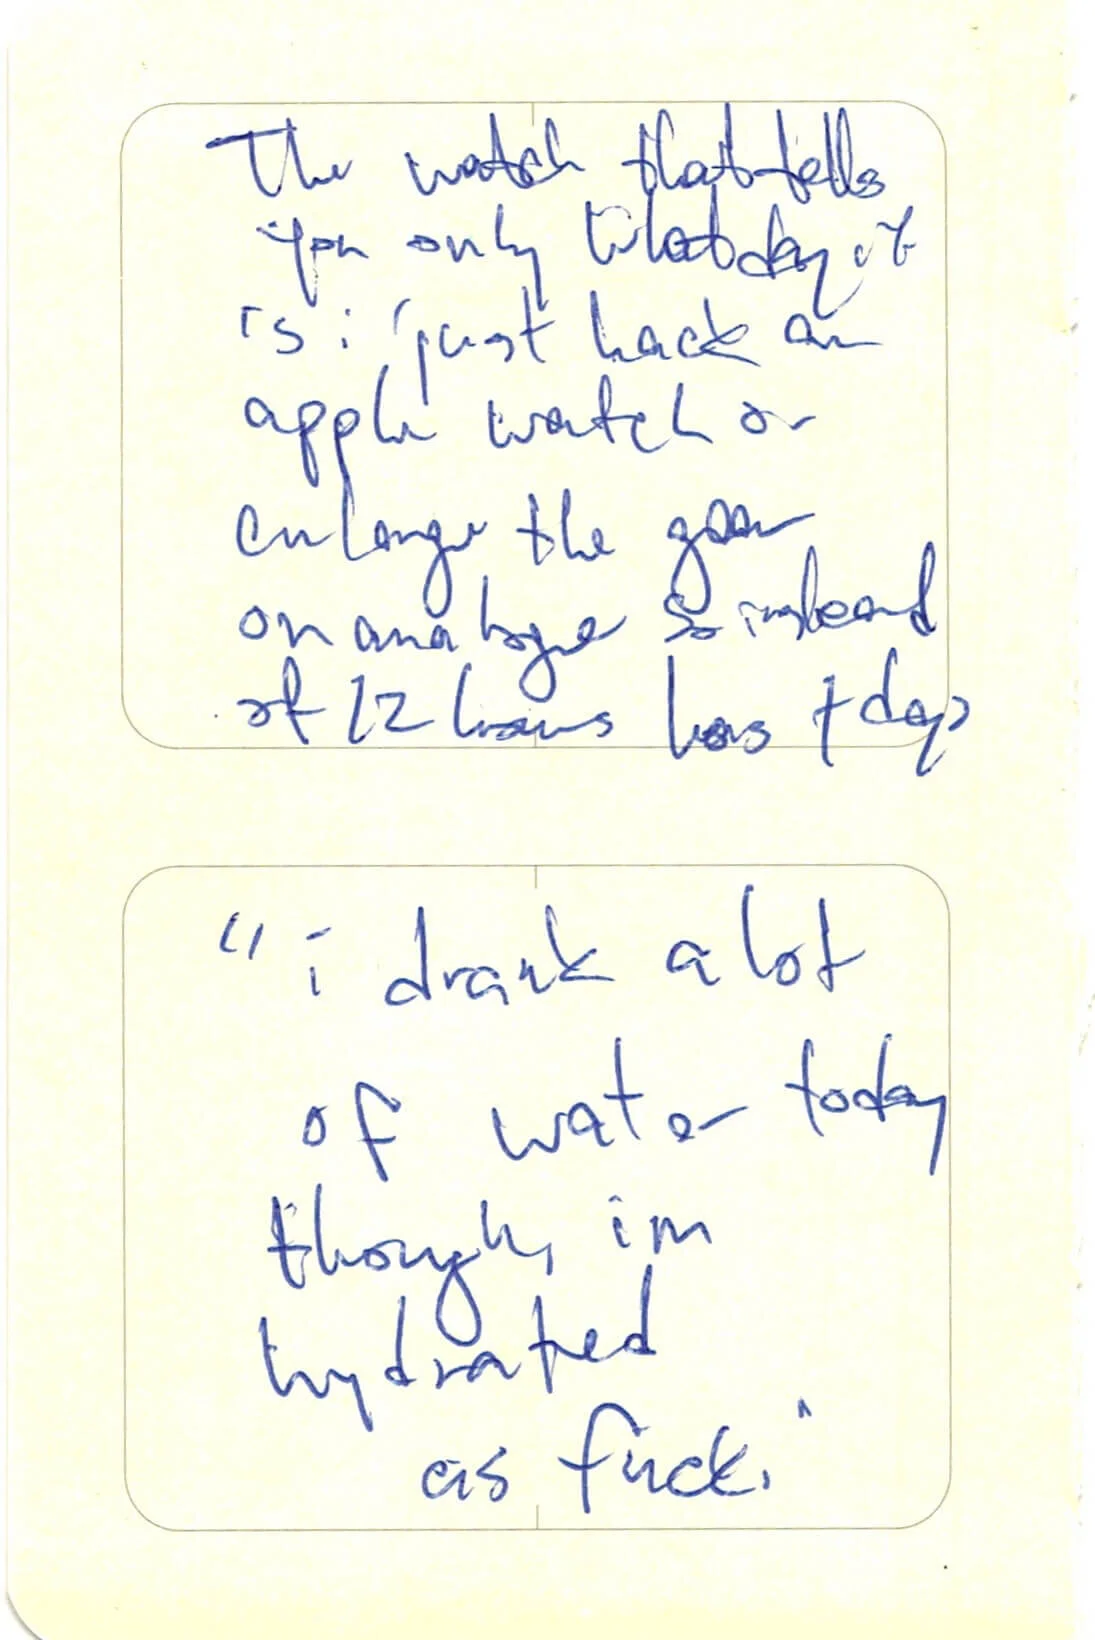 The watch that tells
you only what day it
is: just hack an
apple watch or
enlarge the gear
on analogue so instead
of 12 hours has 7 days
"i drank a lot
of water today
though, im
hydrated
as fuck."